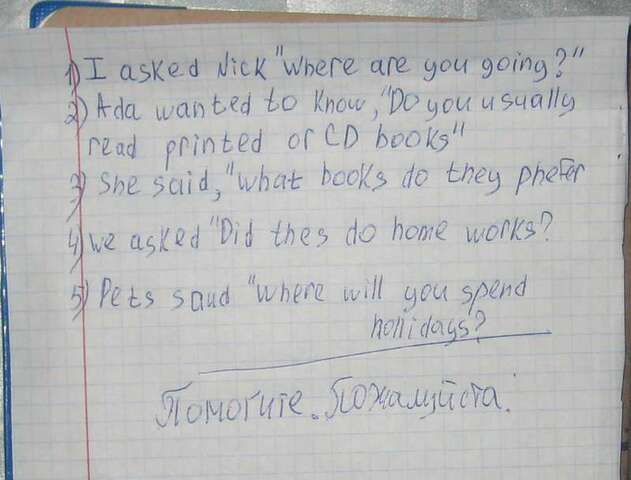 1) I asked Nick "Where are you going?"
2) Ada wanted to know, "Do you usually
read printed or CD books"
3) She said, "what books do they phefer
4) we asked "Did thes do home works?
5) Pets saud "where will you spend
holidays?
Помогите. Пожалуйста.